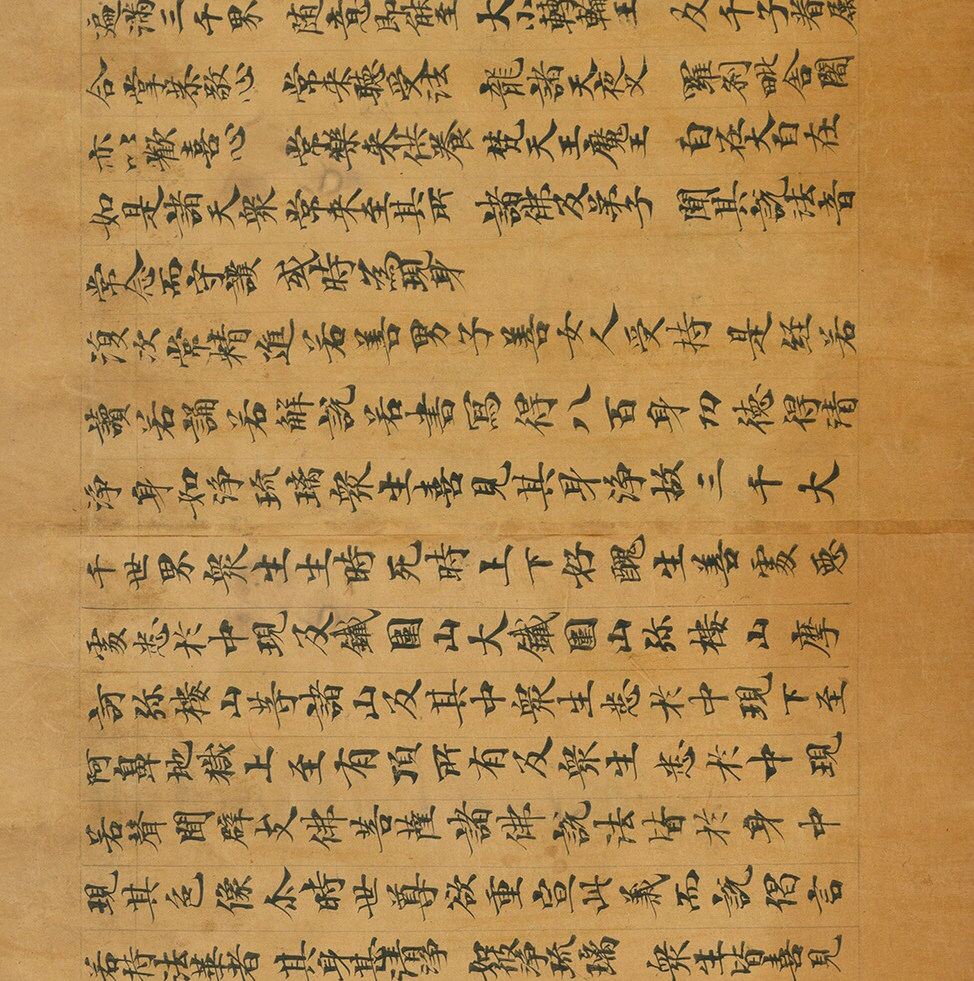 遍滿三千界 隨意即能至 大小轉輪王 及千子眷屬
合掌恭敬心 常來聽受法 龍諸天夜叉 羅刹毗舍闍
亦以歡喜心 常樂來供養 梵天王魔王 自在大自在
如是諸天衆 常來至其所 諸佛及弟子 聞其說法音
常念而守護 或時為現身
復次常精進若善男子善女人受持是經若
讀若誦若解說若書寫得八百身功德得清
淨身如淨琉璃衆生喜見其身淨故三千大
千世界衆生生時死時上下好醜生善處惡
處悉於中現及鐵圍山大鐵圍山弥樓山摩
訶弥樓山等諸山及其中衆生悉於中現下至
阿鼻地獄上至有頂所有及衆生悉於中現
若聲聞辟支佛菩薩諸佛說法皆於身中
現其色像尒時世尊欲重宣此義而說偈言
若持法華者 其身甚清淨 如彼淨琉璃 衆生皆喜見